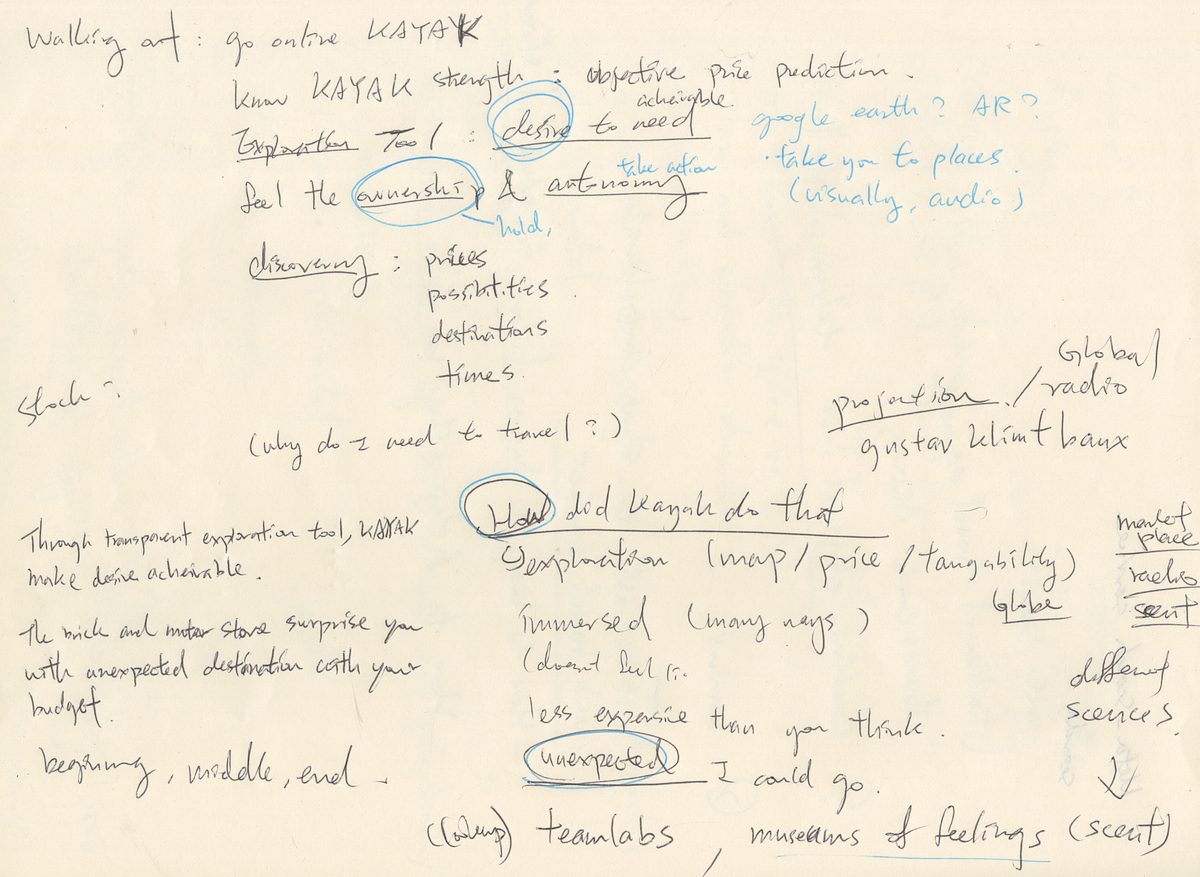 Walking out : go online KAYAK
know KAYAK strength : objective price prediction.
acheivable.
Exploration Tool : desire to need
google earth? AR?
take action
· take you to places.
feel the ownership & autonomy
(visually, audio)
hold,
discovery : prices
possibitities.
destinations
times.
Global
Stock :
projection / radio
(why do I need to travel?)
gustav klimt baux
How did Kayak do that
market
place
Through transparent exploration tool, KAYAK
exploration (map / price / tangability)
make desire acheivable.
radio
Globe
scent
The brick and mortar store surprise you
immersed (many ways)
with unexpected destination with your
(doesnt feel
budget.
different
scences.
less expensive than you think.
beginning, middle, end.
unexpected I could go.
(lookup) teamlabs, museums of feelings (scent)